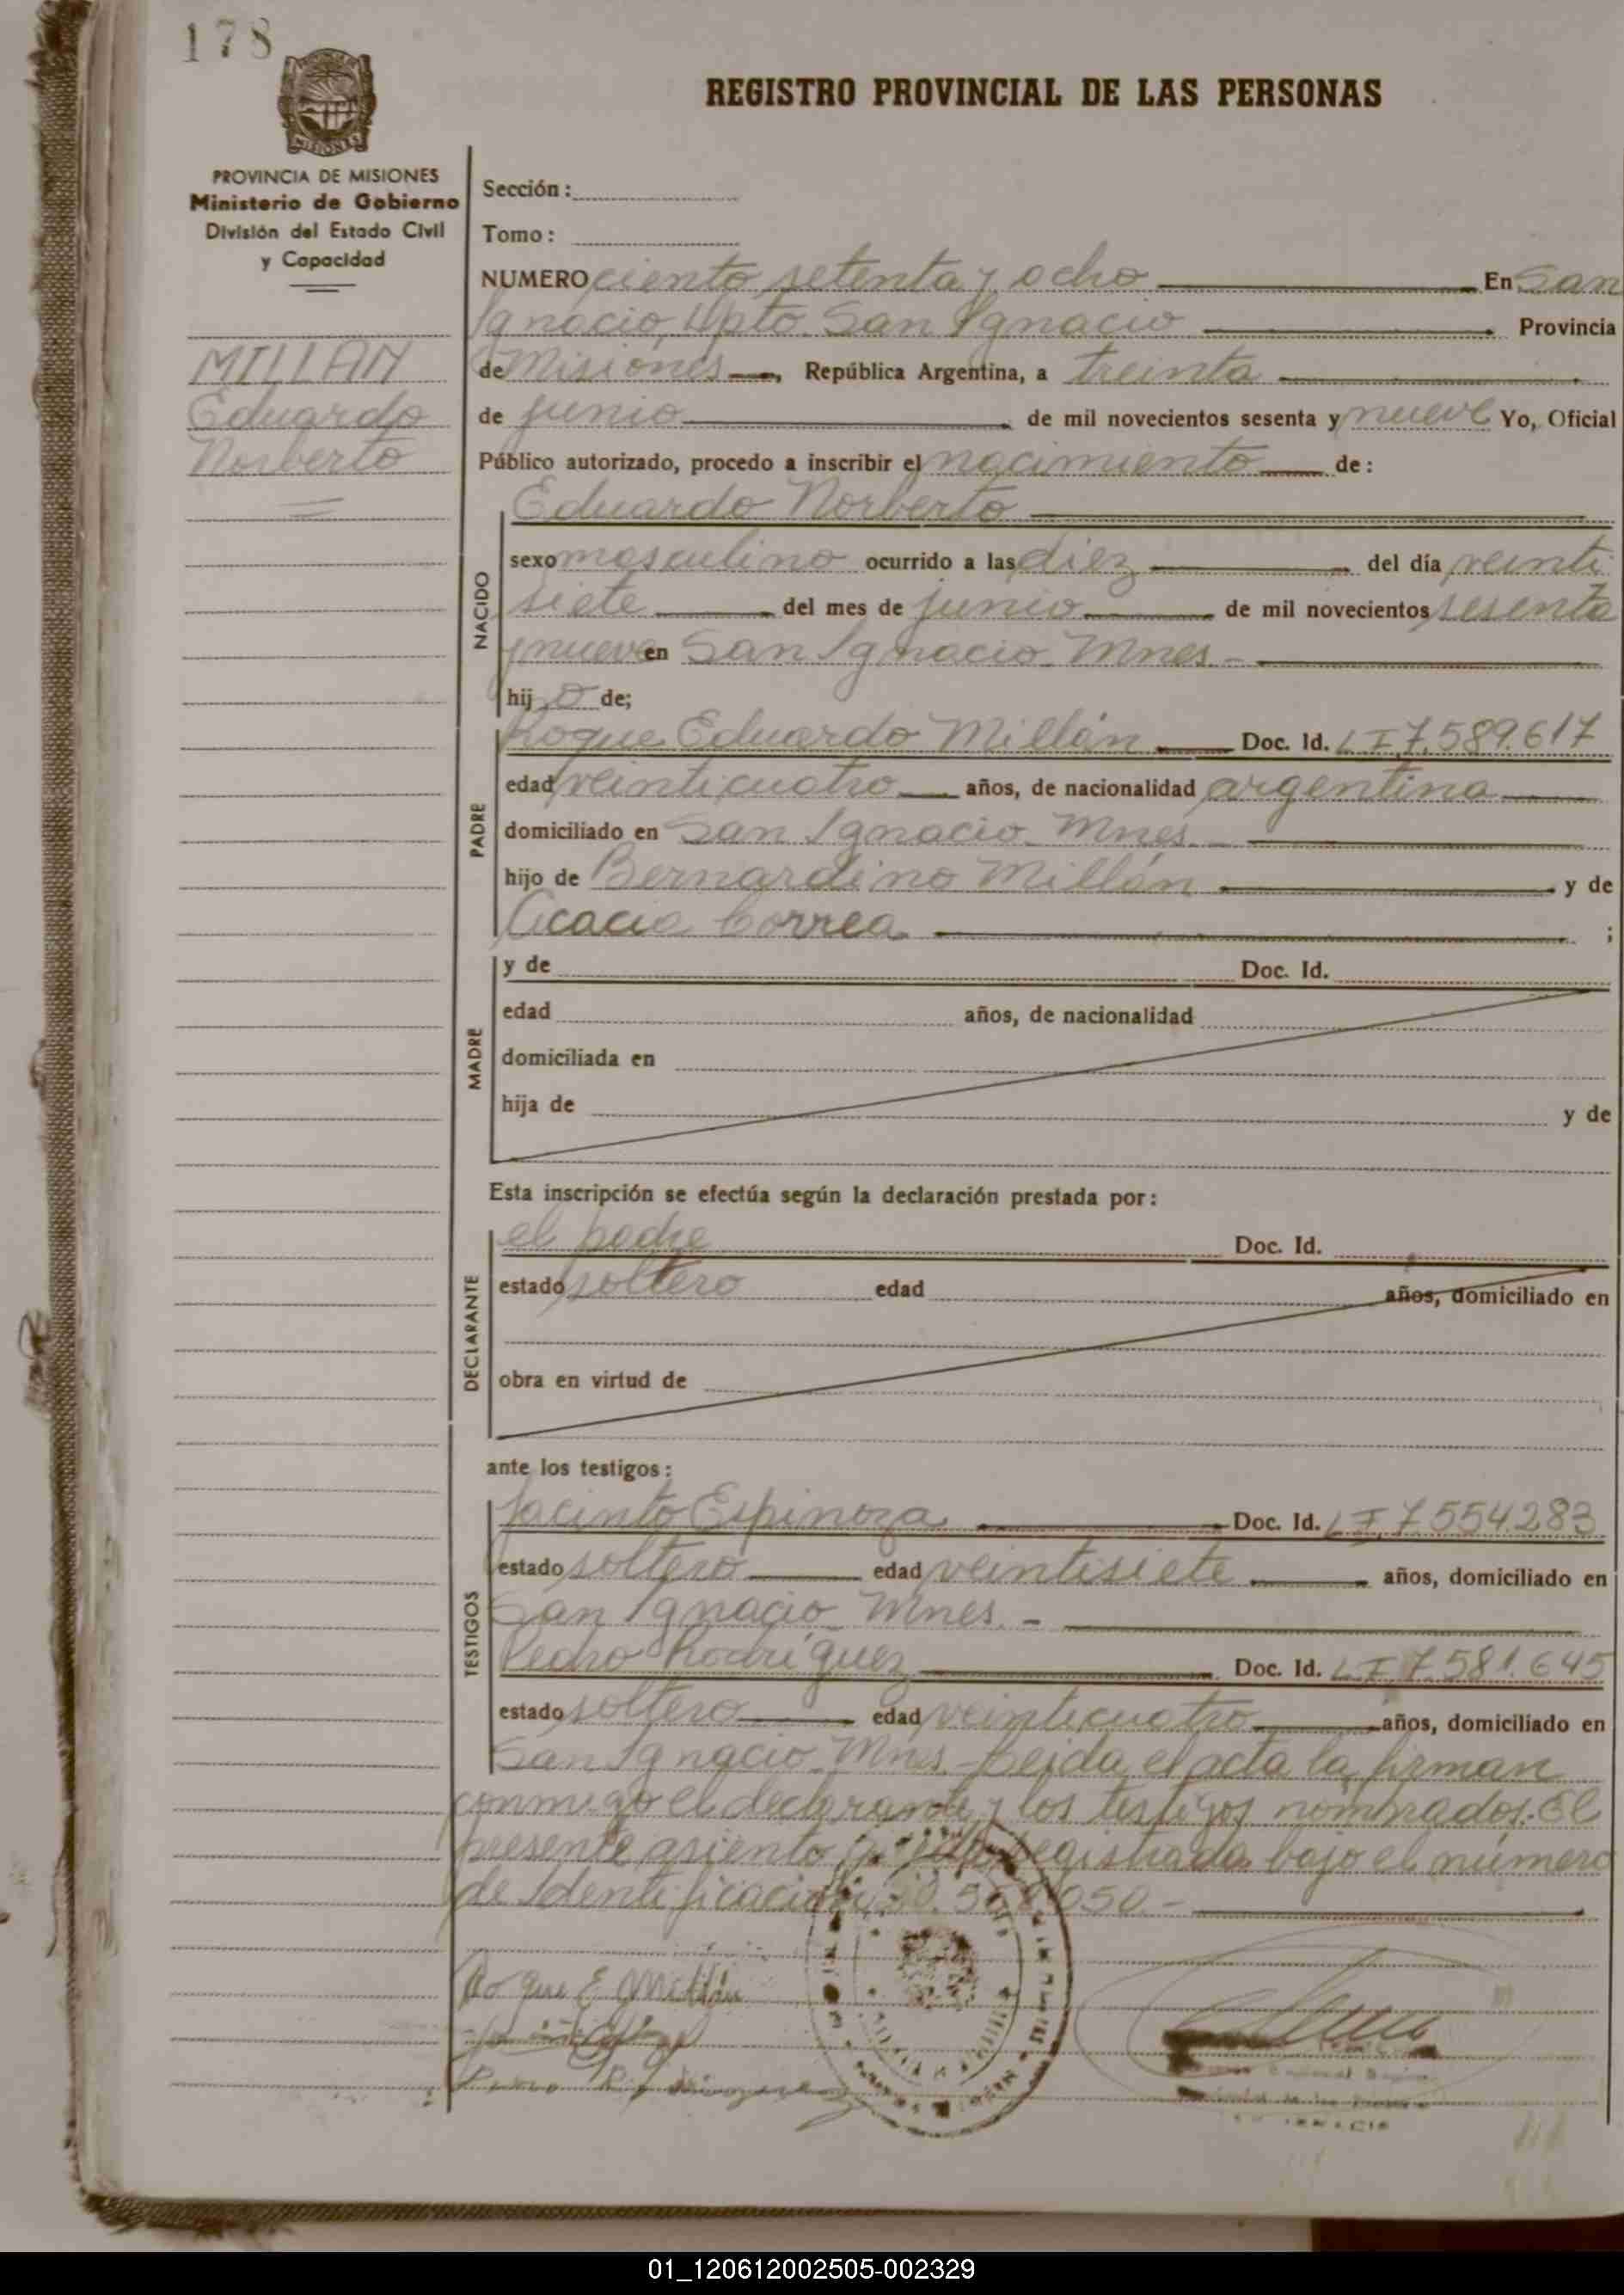 178
REGISTRO PROVINCIAL DE LAS PERSONAS
MISIONES
PROVINCIA DE MISIONES
Ministerio de Gobierno
División del Estado Civil
y Capacidad
MILLAN
Eduardo
Norberto
Sección:
Tomo:
NUMERO ciento setenta y ocho En San
Ignacio, Dpto. San Ignacio Provincia
de Misiones, República Argentina, a treinta
de junio de mil novecientos sesenta y nueve Yo, Oficial
Público autorizado, procedo a inscribir el nacimiento de:
Eduardo Norberto
NACIDO
sexo masculino ocurrido a las diez del día veinti
siete del mes de junio de mil novecientos sesenta
y nueve en San Ignacio Mnes.-
hijo de;
PADRE
Roque Eduardo Millán Doc. Id. L I 7.589.617
edad veinticuatro años, de nacionalidad argentina
domiciliado en San Ignacio Mnes.-
hijo de Bernardino Millán y de
Acacia Correa ;
MADRE
y de Doc. Id.
edad años, de nacionalidad
domiciliada en
hija de y de
Esta inscripción se efectúa según la declaración prestada por:
DECLARANTE
el padre Doc. Id.
estado soltero edad años, domiciliado en
obra en virtud de
ante los testigos:
TESTIGOS
Jacinto Espinoza Doc. Id. L I 7554283
estado soltero edad veintisiete años, domiciliado en
San Ignacio Mnes.-
Pedro Rodríguez Doc. Id. L I 7.581.645
estado soltero edad veinticuatro años, domiciliado en
San Ignacio Mnes.- Leida el acta la firman
conmigo el declarante y los testigos nombrados. El
presente asiento registrada bajo el número
de Identificación
Roque E Millán
01_120612002505-002329